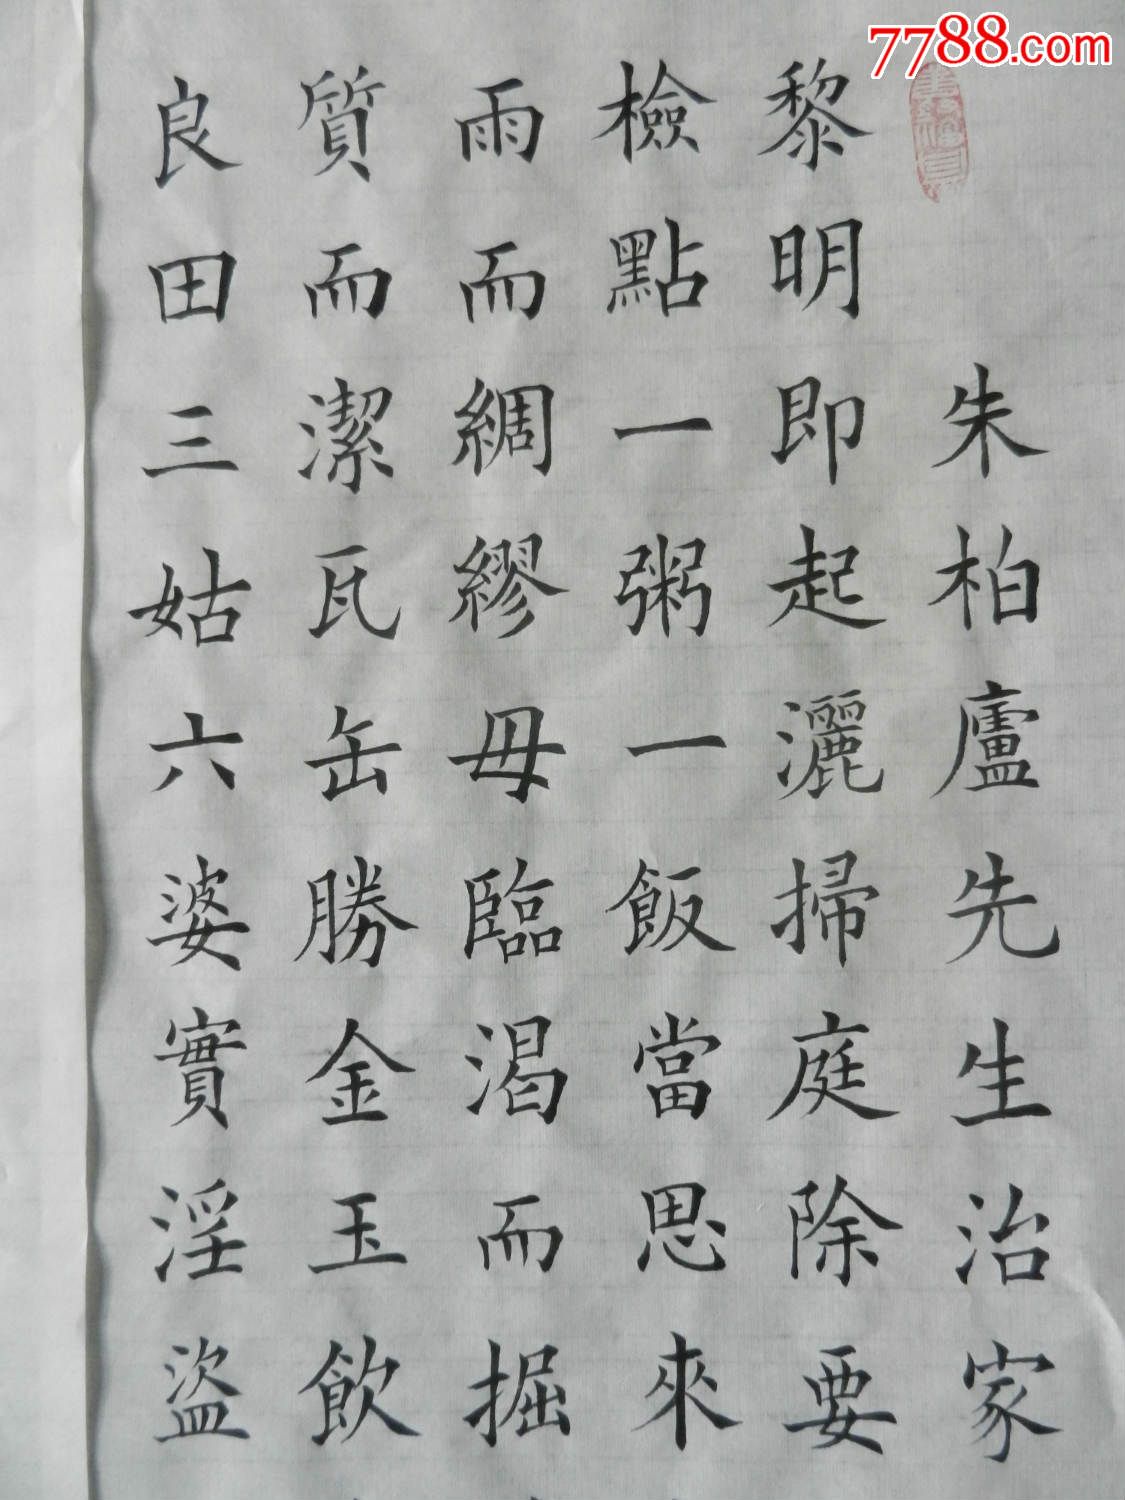 7788.com
朱柏廬先生治家
黎明即起灑掃庭除要
檢點一粥一飯當思來
雨而綢繆毋臨渴而掘
質而潔瓦缶勝金玉飲
良田三姑六婆實淫盜